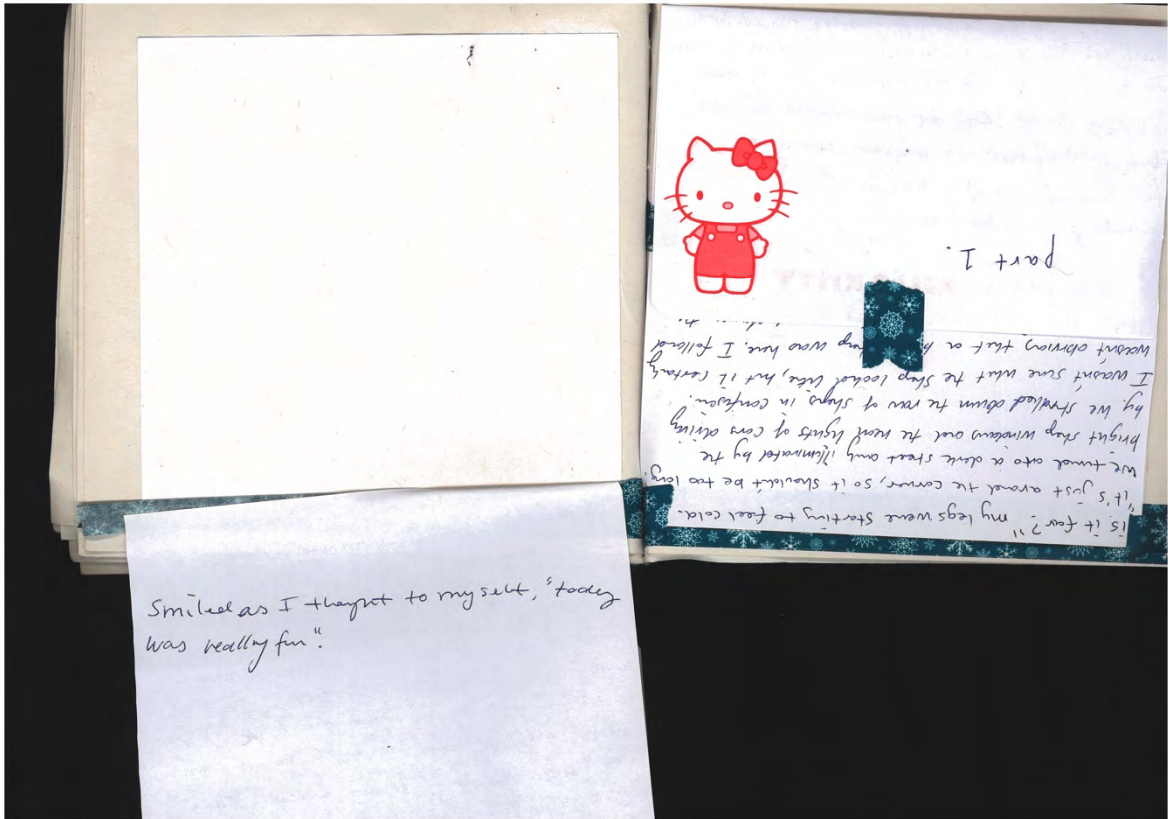 Smiled as I thought to myself, "today
was really fun".
part 1.
is it far?" my legs were starting to feel cold.
"it's just around the corner, so it shouldn't be too long.
We turned onto a dark street only illuminated by the
bright shop windows and the head lights of cars driving
by. We strolled down the row of shops in confusion.
I wasn't sure what the shop looked like, but it certainly
wasn't obvious that a shop was here. I followed